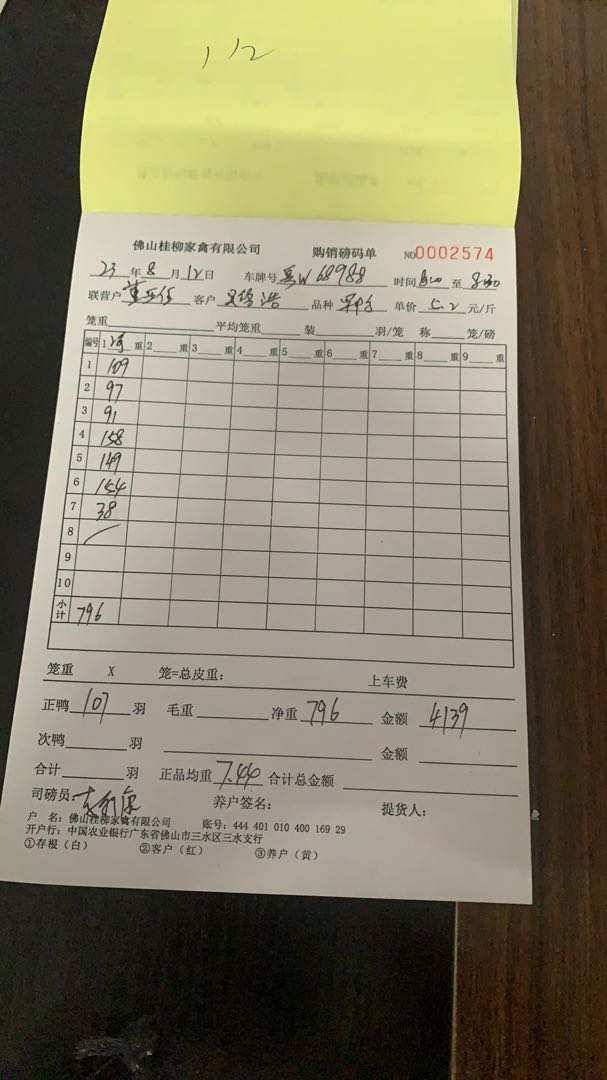 112
佛山桂柳家禽有限公司 购销磅码单 NO0002574
23年8月12日 车牌号 粤W68988 时间 至 8:30
联营户 客户 品种 单价 5.2 元/斤
笼重 平均笼重 装 羽/笼 称 笼/磅
编号 1 净 重 2 重 3 重 4 重 5 重 6 重 7 重 8 重 9 重
1 109
2 97
3 91
4 158
5 149
6 154
7 38
8
9
10
小计 796
笼重 X 笼=总皮重: 上车费
正鸭 107 羽 毛重 净重 796 金额 4139
次鸭 羽 金额
合计 羽 正品均重 7.44 合计总金额
司磅员: 养户签名: 提货人:
户 名: 佛山桂柳家禽有限公司 账号: 444 401 010 400 169 29
开户行: 中国农业银行广东省佛山市三水区三水支行
①存根（白） ②客户（红） ③养户（黄）